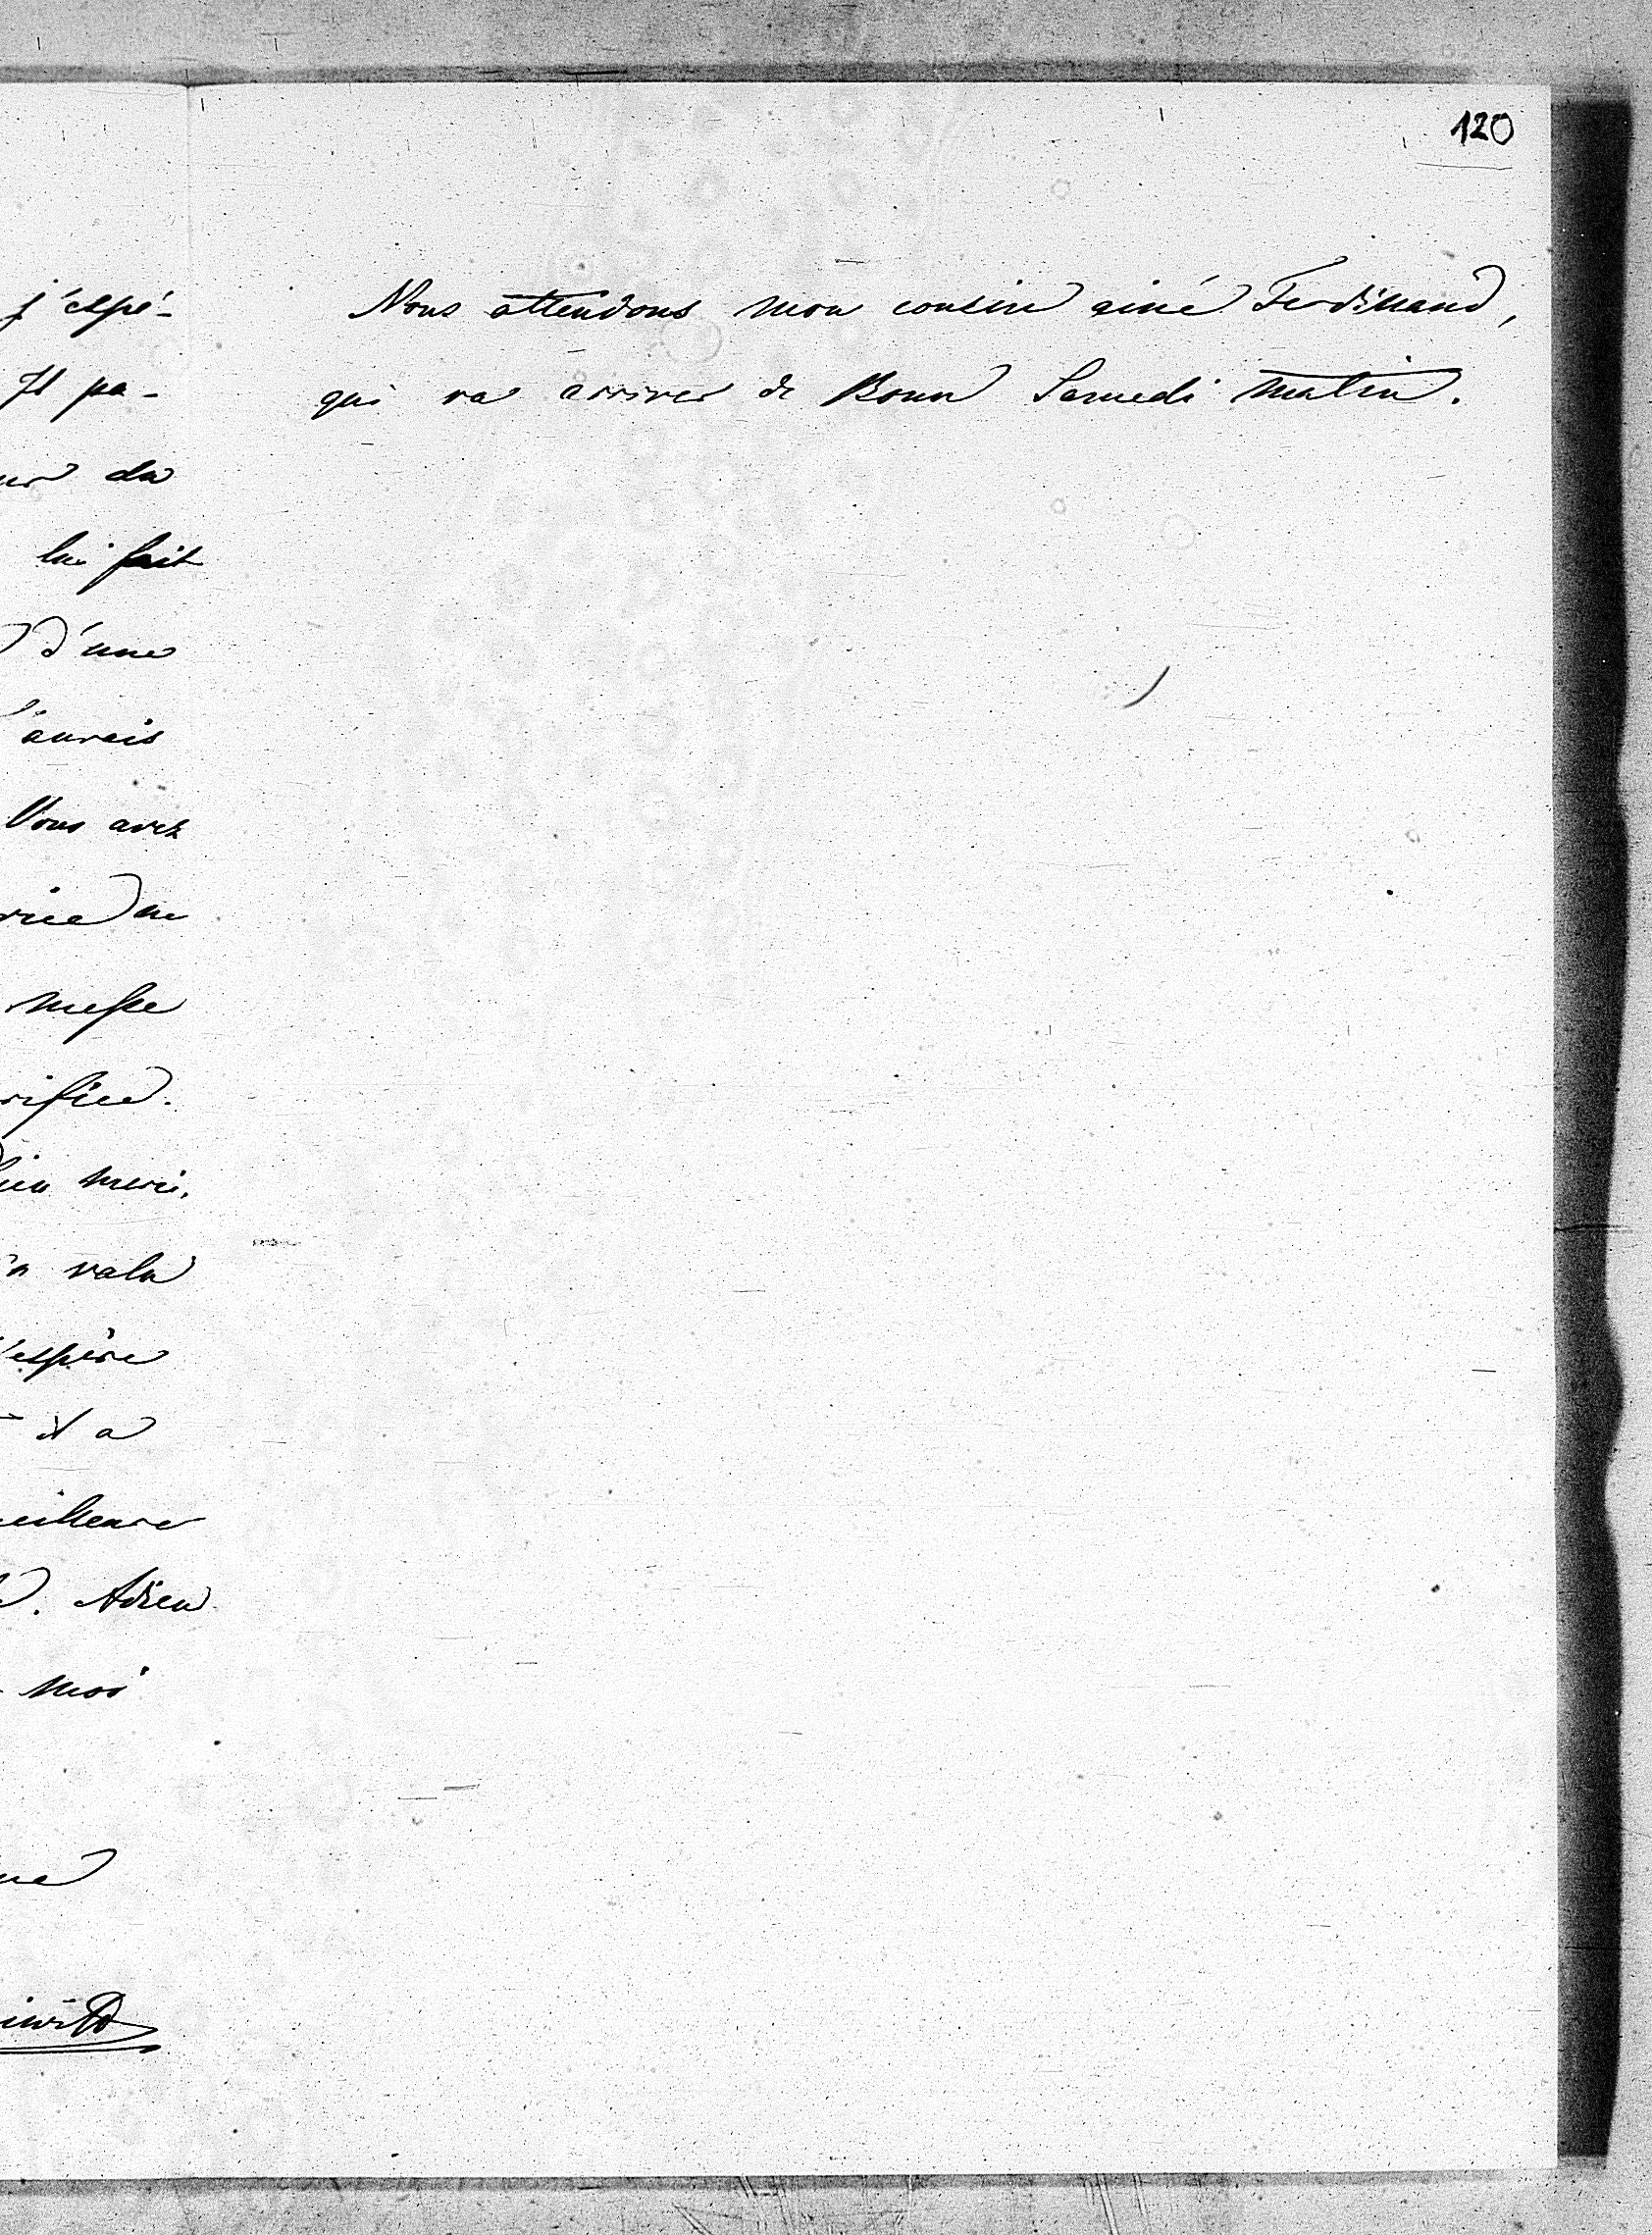 120
Nous attendons mon cousin ainé Ferdinand,
qui va arriver de Bonn Samedi matin.
j'espé-
Il pa-
du
lui fait
d'une
aurais
Vous avez
ne
messe
merci,
valu
espère
il a
meilleure
Adieu
moi